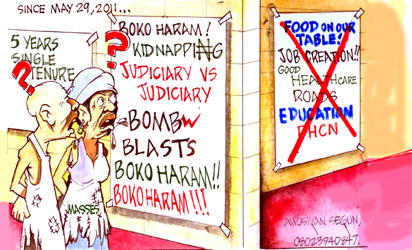 SINCE MAY 29, 2011...
5 YEARS
SINGLE
TENURE
?
?
MASSES
BOKO HARAM!
KIDNAPPING
JUDICIARY VS
JUDICIARY
BOMB
BLASTS
BOKO HARAM!!
BOKO HARAM!!!
FOOD ON OUR
TABLE!
JOB CREATION!!
GOOD
HEALTHCARE
ROADS
EDUCATION
PHCN
SEGUN